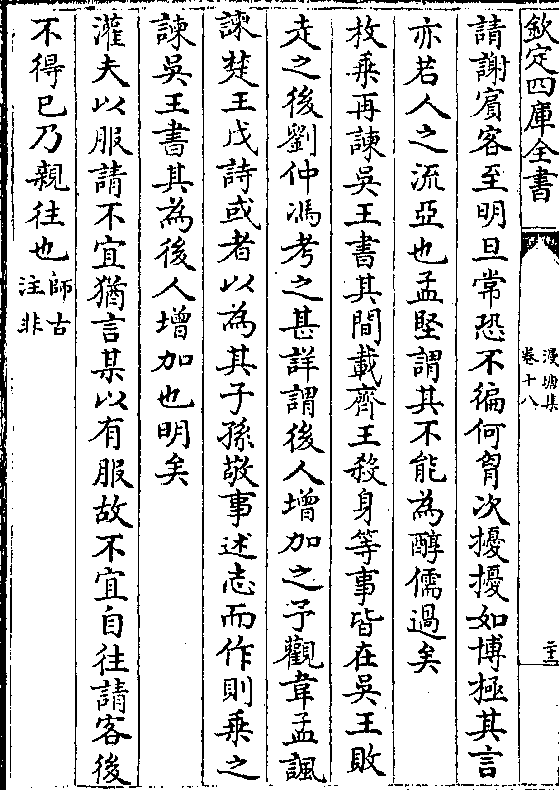 欽定四庫全書
漫塘集
卷十八
二十三
請謝賓客至明旦常恐不徧何胷次擾擾如博極其言
亦若人之流亞也孟堅謂其不能為醇儒過矣
枚乘再諫吳王書其間載齊王殺身等事皆在吳王敗
走之後劉仲馮考之甚詳謂後人增加之予觀韋孟諷
諫楚王戊詩或者以為其子孫敬事述志而作則乗之
諫吳王書其為後人增加也明矣
灌夫以服請不宜猶言某以有服故不宜自往請客後
不得已乃親往也師古
注非